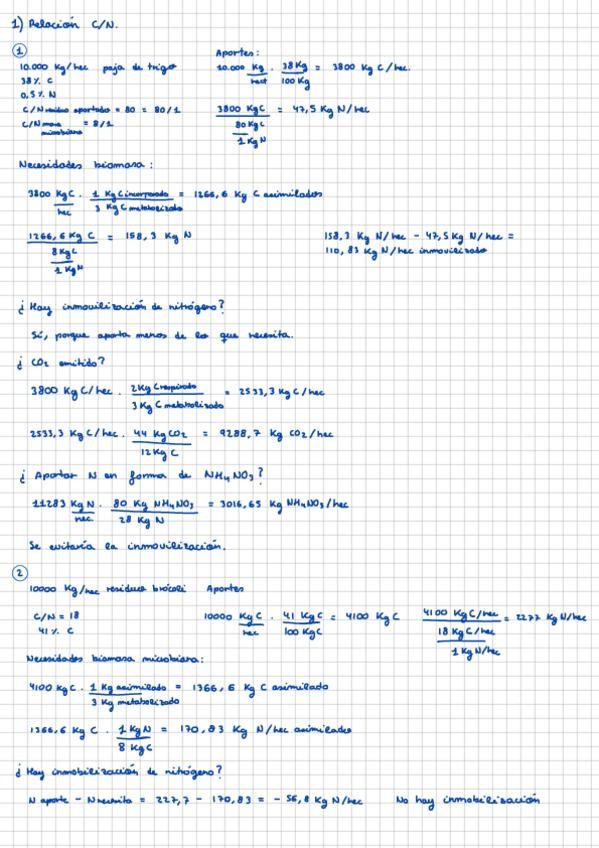 1) Relación C/N.
①
Aportes:
10.000 Kg/hec paja de trigo
10.000 Kg/hect · 38 Kg/100 Kg = 3800 Kg C/hec.
38% C
0,5% N
C/N residuo aportado = 80 = 80/1
3800 KgC / (80 KgC / 1 Kg N) = 47,5 Kg N/hec
C/N masa microbiana = 8/1
Necesidades biomasa:
3800 KgC/hec · 1 Kg C incorporado / 3 Kg C metabolizado = 1266,6 Kg C asimilados
1266,6 Kg C / (8 KgC / 1 KgN) = 158,3 Kg N
158,3 Kg N/hec - 47,5 Kg N/hec =
110,83 Kg N/hec inmovilizado
¿Hay inmovilización de nitrógeno?
Sí, porque aporta menos de lo que necesita.
¿CO2 emitido?
3800 Kg C/hec · 2 Kg C respirado / 3 Kg C metabolizado = 2533,3 Kg C/hec
2533,3 Kg C/hec · 44 Kg CO2 / 12 Kg C = 9288,7 Kg CO2/hec
¿Aportar N en forma de NH4NO3?
11283 Kg N/hec · 80 Kg NH4NO3 / 28 Kg N = 3016,65 Kg NH4NO3/hec
Se evitaría la inmovilización.
②
10000 Kg/hec residuo brócoli Aportes
C/N = 18
10000 KgC/hec · 41 KgC / 100 KgC = 4100 KgC
4100 KgC/hec / (18 KgC/hec / 1 Kg N/hec) = 2277 Kg N/hec
41% C
Necesidades biomasa microbiana:
4100 KgC · 1 Kg asimilado / 3 Kg metabolizado = 1366,6 Kg C asimilado
1366,6 Kg C · 1 Kg N / 8 KgC = 170,83 Kg N/hec asimilados
¿Hay inmobilización de nitrógeno?
N aporte - N necesita = 227,7 - 170,83 = - 56,8 Kg N/hec No hay inmobilización